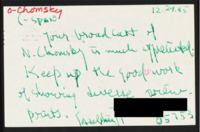 o-Chomsky
12-29.85
(-Span
Your broadcast of
N. Chomsky is much appreciated.
Keep up the good work
of showing diverse view-
points.
05753